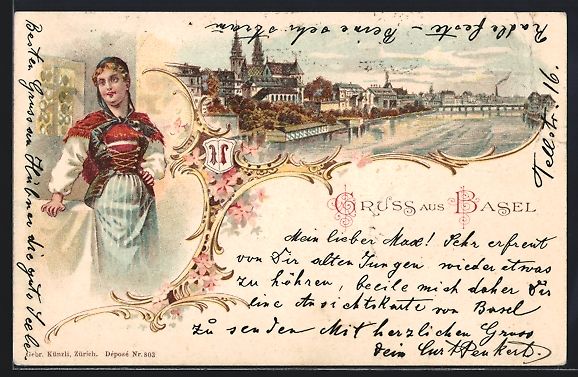 GRUSS AUS BASEL
Mein lieber Max! Sehr erfreut
von Dir alten Jungen wieder etwas
zu höhren, beeile mich daher Dir
eine Ansichtskarte von Basel
zu senden Mit herzlichen Gruss
dein Curt Penkert.
Tellstr. 16.
Besten Gruss an Hübner die gute Seele
Gebr. Künzli, Zürich. Déposé Nr. 803